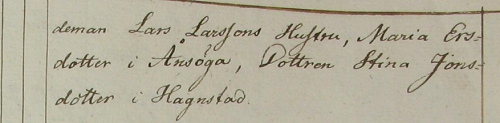 deman Lars Larssons Hustru, Maria Ers-
dotter i Ånsöga, Dottren Stina Jons-
dotter i Hagnstad.